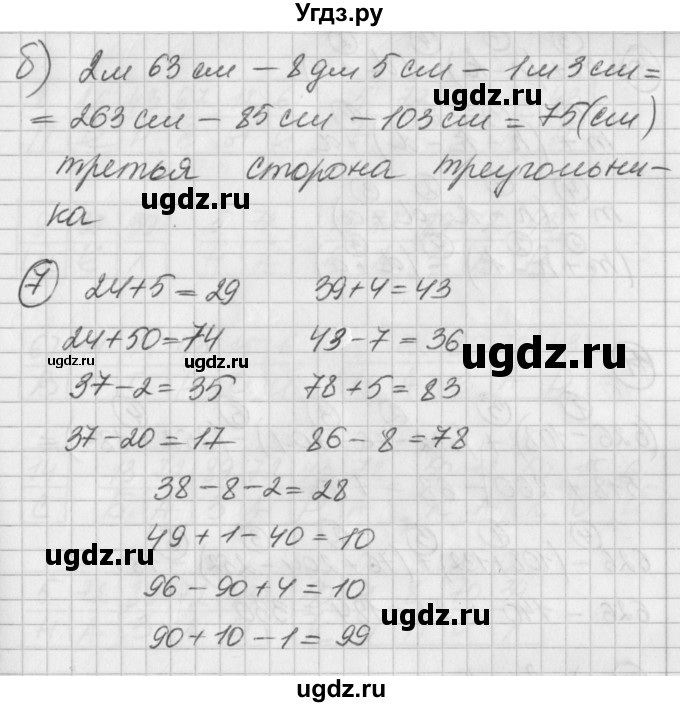 Угдз.ру
б) 2м 63 см – 8 дм 5 см – 1 м 3 см =
= 263 см – 85 см – 103 см = 75 (см)
третья сторона треугольни-
ка
7 24+5=29 39+4=43
24+50=74 43-7=36
37-2=35 78+5=83
37-20=17 86-8=78
38-8-2=28
49+1-40=10
96-90+4=10
90+10-1=99
ugdz.ru
ugdz.ru
ugdz.ru
ugdz.ru
ugdz.ru
ugdz.ru
ugdz.ru
ugdz.ru
ugdz.ru